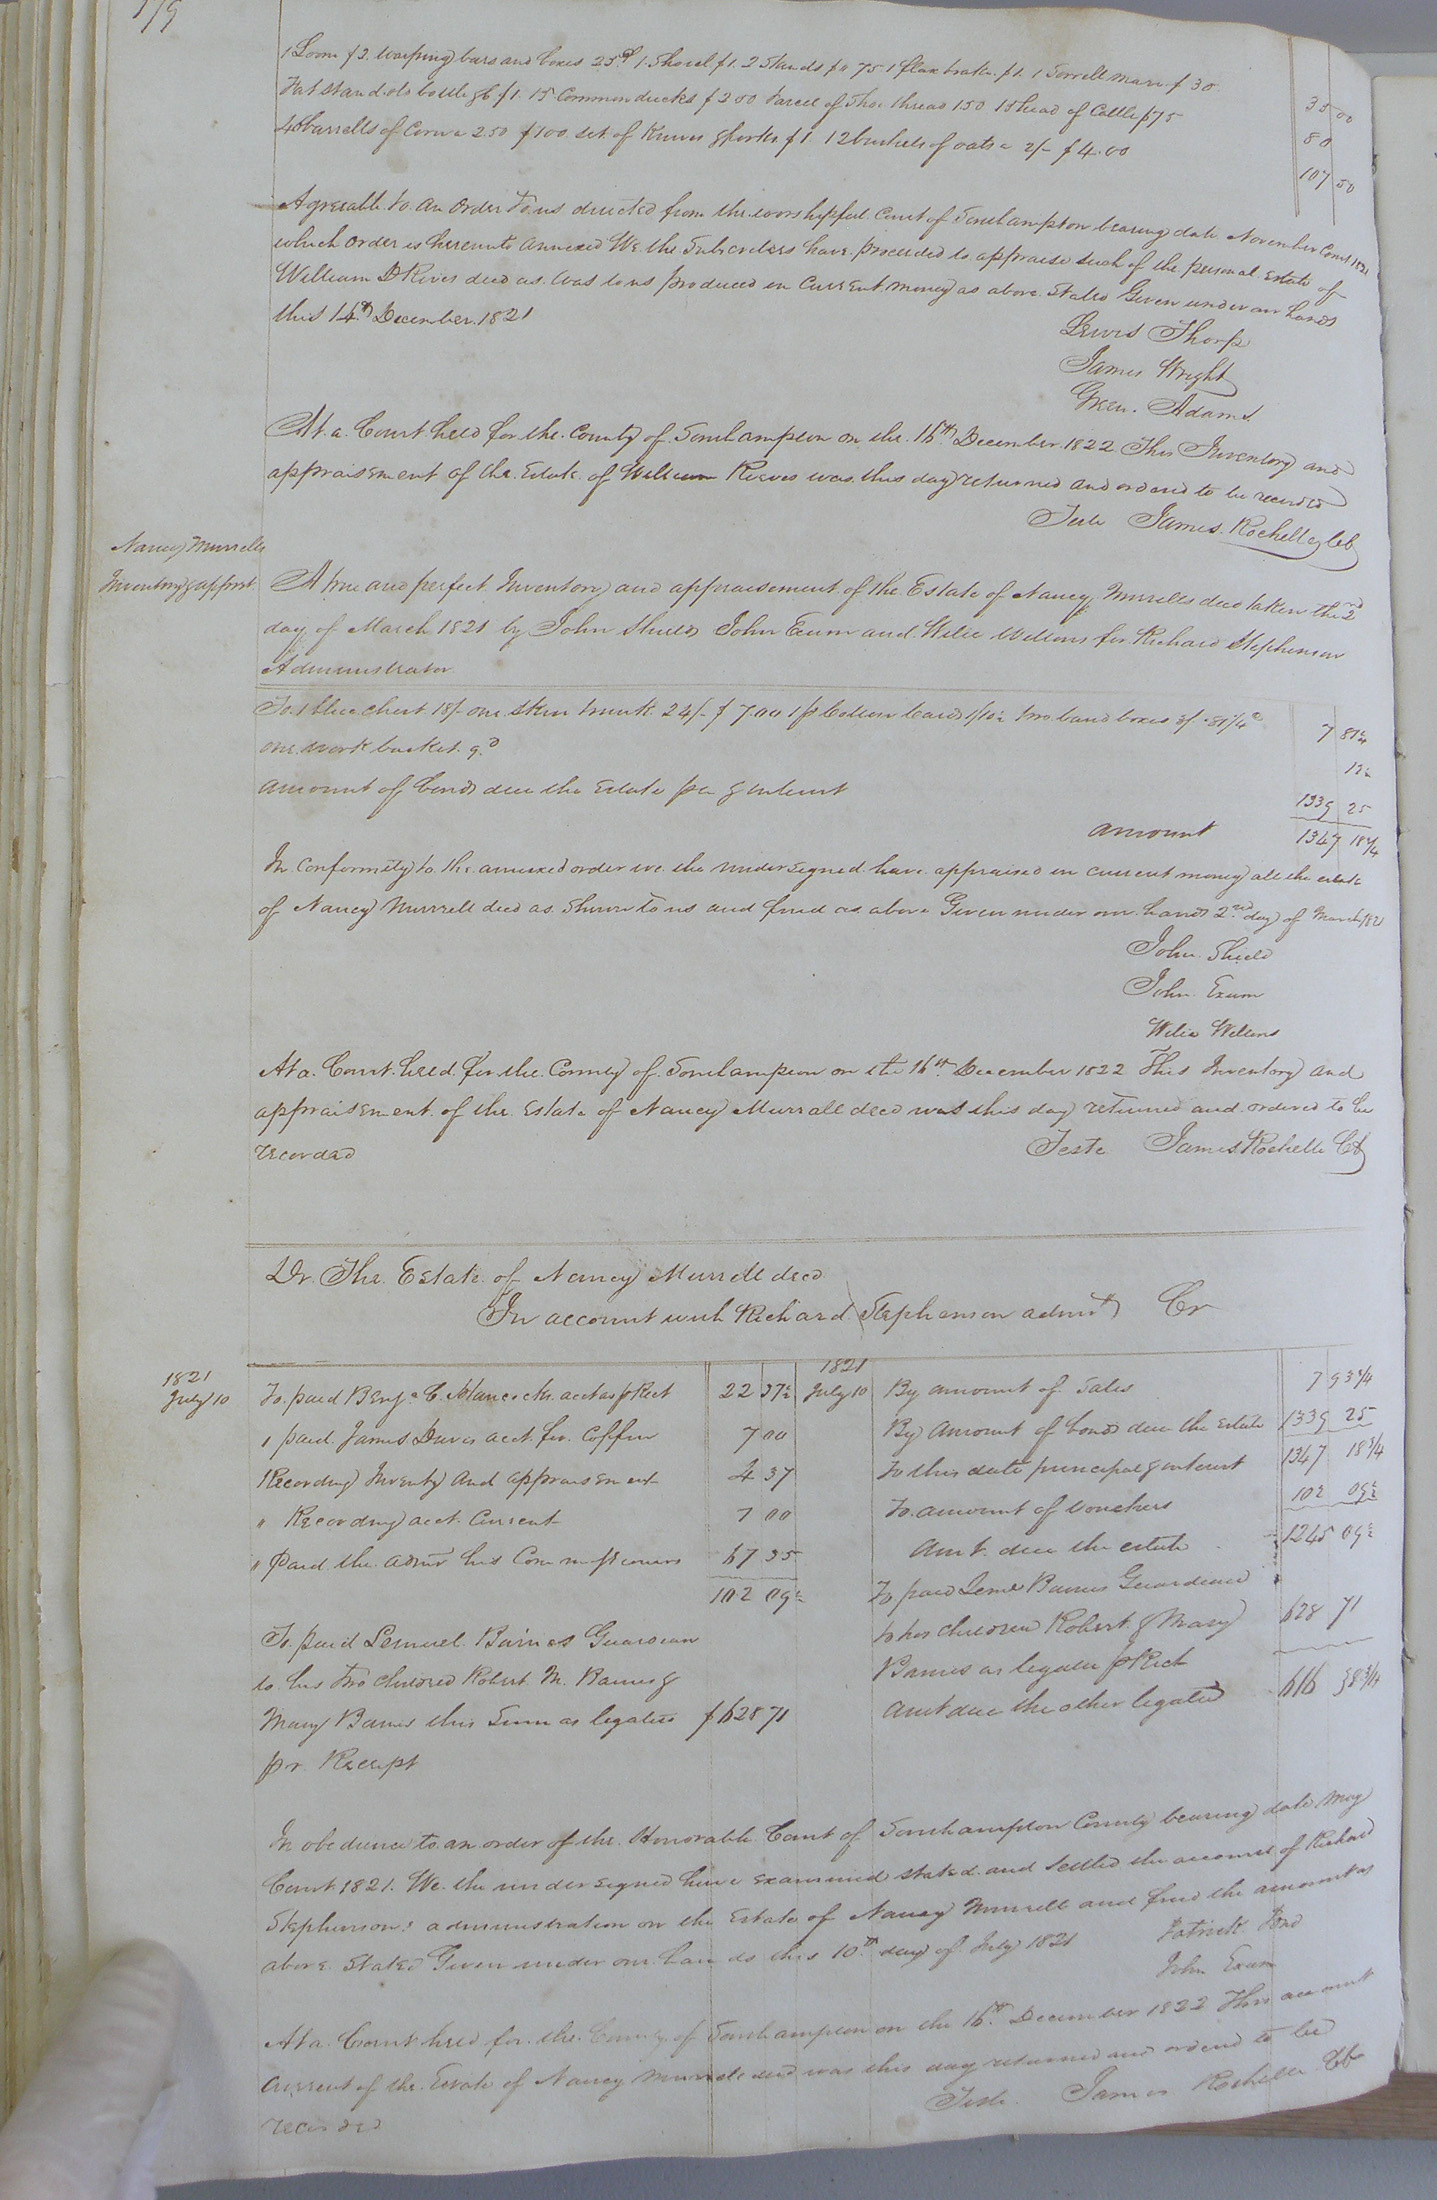 179
1 Loom $3. warping bars and boxes 25d 1 Shovel $1. 2 Stands $0 75 1 flax brake $1. 1 Sorrell mare $30
35 00
Fat stand old bottle &c $1. 15 Common ducks $2 00 parcel of Shoe thread 1 50 15 head of Cattle $75
80
40 barrells of Corn a 2.50 $100 set of Knives & forks $1 12 bushels of oats a 2/- $4.00
107 50
Agreeable to an Order to us directed from the worshipful Court of Southampton bearing date November Court 1821
which order is hereunto annexed We the Subscribers have proceeded to appraise such of the personal Estate of
William D Rives decd as was to us produced in Current money as above Stated Given under our hands
this 14th December 1821
Lewis Thorp
James Wright
Green Adams
At a Court held for the County of Southampton on the 16th December 1822 This Inventory and
appraisement of the Estate of William Reeves was this day returned and ordered to be recorded
Teste James Rochelle Clk
Nancy Murrells
Inventory & apprst.
A true and perfect Inventory and appraisement of the Estate of Nancy Murrells decd taken the 2nd
day of March 1821 by John Shield John Exum and Wilie Wellons for Richard Stephenson
Administrator
To 1 blue chest 18/- one Skin trunk 24/- $7.00 1 p Cotton Cards two band boxes 3/- 81 1/4 c
7 81 1/4
one work basket 9d
12 1/2
amount of bonds due the Estate & interest
1339 25
amount
1347 18 3/4
In Conformity to the annexed order we the undersigned have appraised in current money all the estate
of Nancy Murrell decd as Shewn to us and find as above Given under our hands 2nd day of March 1821
John Shield
John Exum
Wilie Wellons
At a Court held for the County of Southampton on the 16th December 1822 This Inventory and
appraisement of the Estate of Nancy Murrall decd was this day returned and ordered to be
recorded
Teste James Rochelle Clk
Dr The Estate of Nancy Murrell decd
In account with Richard Stephenson admr Cr
1821
July 10 To paid Benja C. Hancock acct as p Rect 22 37 1/2
" paid James Davis acct. for Coffin 7 00
" Recording Inventy and appraisement 4 37
" Recording acct. Current
" Paid the admr his Commissions 67 35
102 09 1/2
To paid Lemuel Barnes Guardian
to his two children Robert M. Barnes &
Mary Barnes this Sum as legatees $628 71
pr Receipt
1821
July 10 By amount of Sales 7 93 3/4
By Amount of bonds due the Estate 1339 25
To this date principal & interest 1347 18 3/4
To amount of vouchers 102 09 1/2
Amt. due the estate 1245 09 1/2
To paid Leml Barnes Guardian
to his children Robert & Mary 628 71
Barnes as legatee p Rect
Amt due the other legatee 616 38 3/4
In obedience to an order of the Honorable Court of Southampton County bearing date May
Court 1821. We the undersigned have examined stated and Settled the account of Richard
Stephenson's administration on the Estate of Nancy Murrell and find the amount as
above Stated Given under our hands this 10th day of July 1821
Patrick
John Exum
At a Court held for the County of Southampton on the 16th December 1822 This account
Current of the Estate of Nancy Murrell decd was this day returned and ordered to be
recorded
Teste James Rochelle Clk